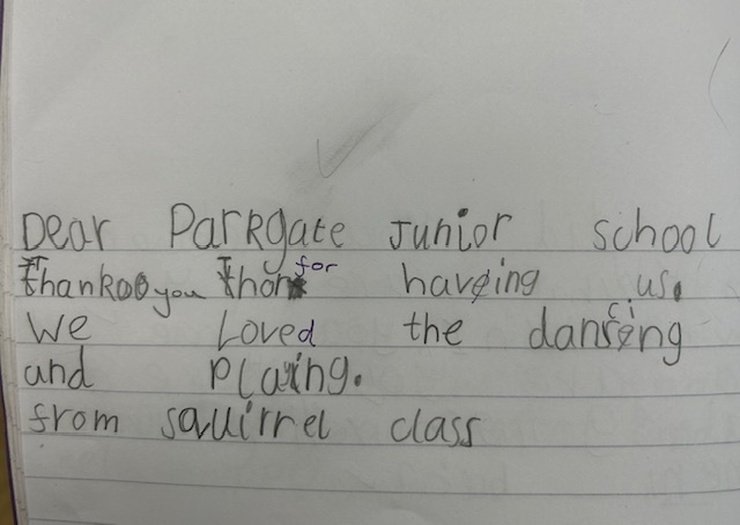 Dear Parkgate Junior school
Thank you for having us.
We Loved the dancing
and Playing.
from squirrel class